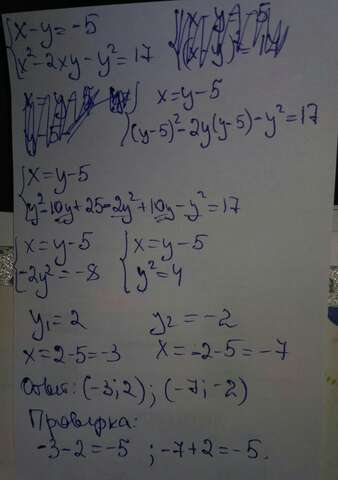 x-y=-5
x²-2xy-y²=17
x=y-5
(y-5)²-2y(y-5)-y²=17
x=y-5
y²-10y+25-2y²+10y-y²=17
x=y-5 x=y-5
-2y²=-8 y²=4
y₁=2 y₂=-2
x=2-5=-3 x=-2-5=-7
Ответ: (-3;2); (-7;-2)
Проверка:
-3-2=-5 ; -7+2=-5.